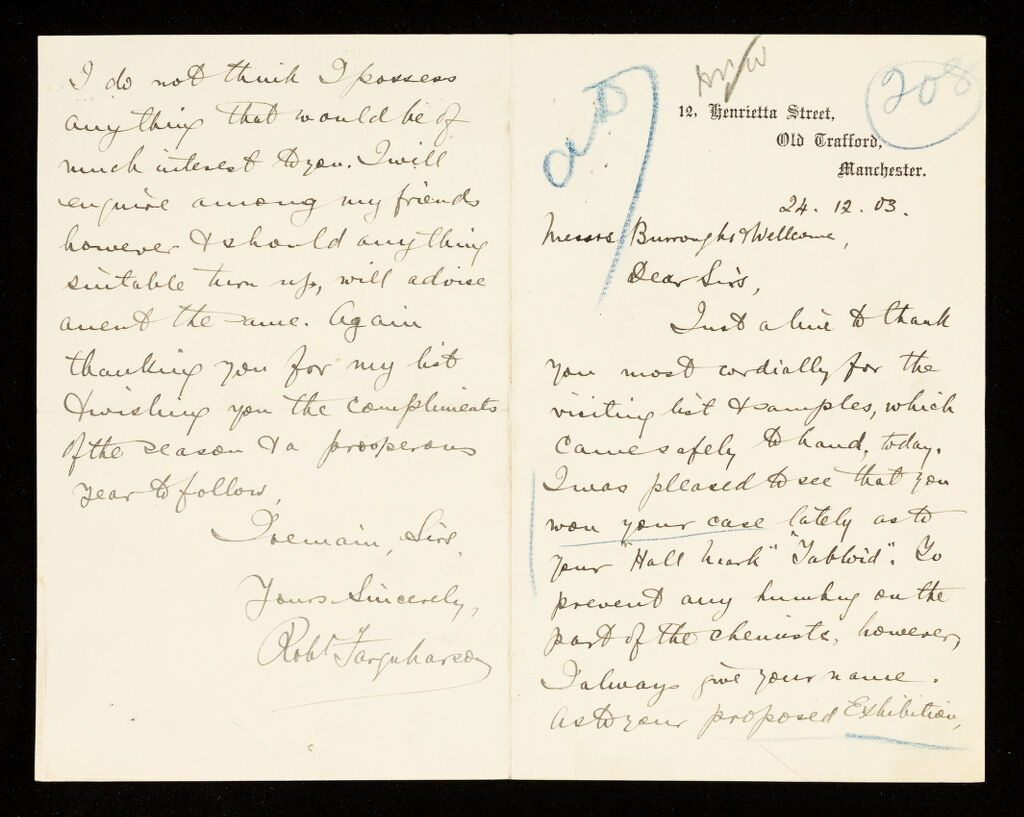 208
12, Henrietta Street,
Old Trafford,
Manchester.
24. 12. 03.
Messrs Burroughs & Wellcome,
Dear Sirs,
Just a line to thank
you most cordially for the
visiting list & samples, which
came safely to hand, today.
I was pleased to see that you
won your case lately as to
your "Hall Mark" "Tabloid". To
prevent any humbug on the
part of the chemists, however,
I always give your name.
As to your proposed Exhibition,
I do not think I possess
anything that would be of
much interest to you. I will
enquire among my friends
however & should anything
suitable turn up, will advise
anent the same. Again
thanking you for my list
& wishing you the compliments
of the season & a prosperous
year to follow,
I remain, Sirs,
Yours Sincerely,
Robt Farquharson